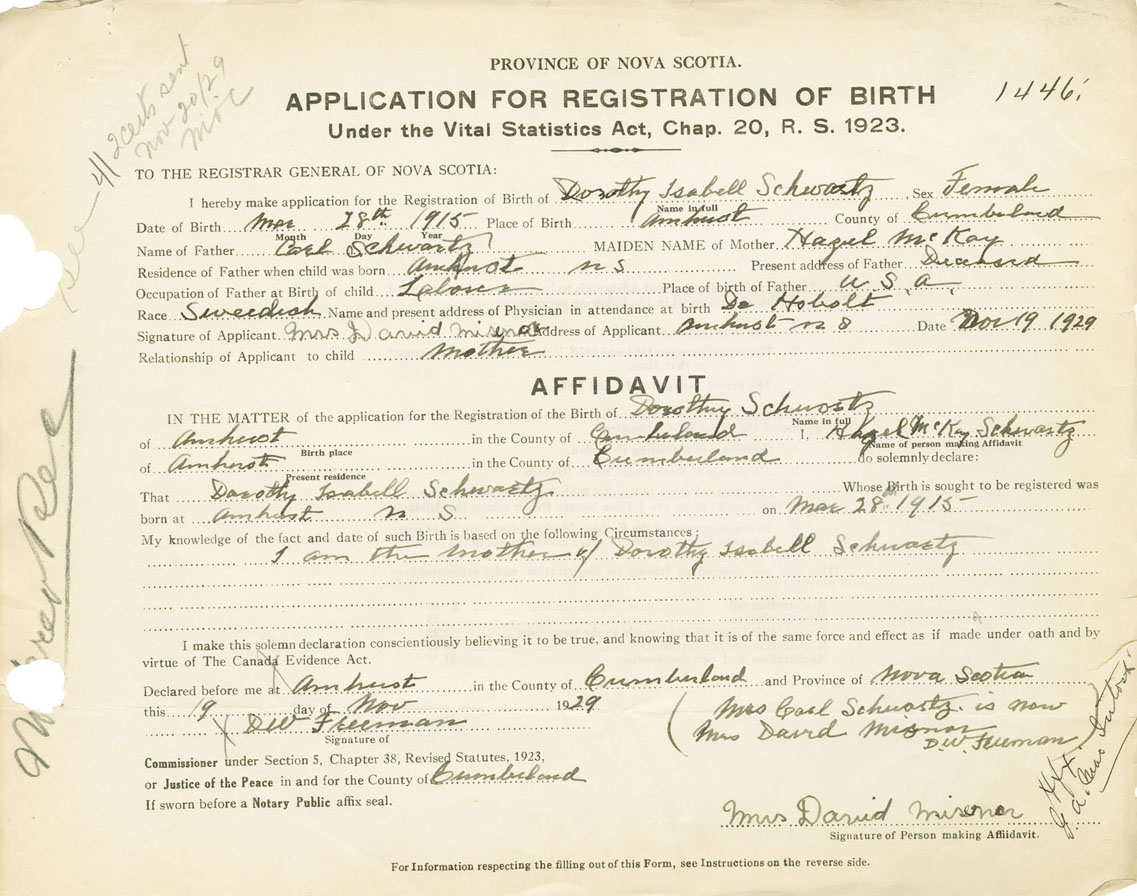 PROVINCE OF NOVA SCOTIA.
APPLICATION FOR REGISTRATION OF BIRTH
1446
Under the Vital Statistics Act, Chap. 20, R. S. 1923.
2 certs sent
Nov 20/29
TO THE REGISTRAR GENERAL OF NOVA SCOTIA:
I hereby make application for the Registration of Birth of Dorothy Isabell Schwartz, Sex Female
Name in full
Date of Birth Mar 28th 1915 Place of Birth Amherst County of Cumberland
Month Day Year
Name of Father Carl Schwartz MAIDEN NAME of Mother Hazel McKay
Residence of Father when child was born Amherst N S Present address of Father Deceased
Occupation of Father at Birth of child Laborer Place of birth of Father U. S. A.
Race Sweedish Name and present address of Physician in attendance at birth Dr
Signature of Applicant Mrs David Misner Address of Applicant Amherst N S Date Nov 19 1929
Relationship of Applicant to child mother
AFFIDAVIT
IN THE MATTER of the application for the Registration of the Birth of Dorothy Schwartz
Name in full
of Amherst in the County of Cumberland I, Hazel McKay Schwartz
Birth place Name of person making Affidavit
of Amherst in the County of Cumberland do solemnly declare:
Present residence
That Dorothy Isabell Schwartz Whose Birth is sought to be registered was
born at Amherst N S on Mar 28th 1915
My knowledge of the fact and date of such Birth is based on the following Circumstances:
I am the mother of Dorothy Isabell Schwartz
I make this solemn declaration conscientiously believing it to be true, and knowing that it is of the same force and effect as if made under oath and by
virtue of The Canada Evidence Act.
Declared before me at Amherst in the County of Cumberland and Province of Nova Scotia
this 19 day of Nov 1929
(Mrs Carl Schwartz is now
Mrs David Misner
DW Freeman)
DW Freeman
Signature of
Commissioner under Section 5, Chapter 38, Revised Statutes, 1923,
or Justice of the Peace in and for the County of Cumberland
If sworn before a Notary Public affix seal.
Mrs David Misner
Signature of Person making Affiidavit.
For Information respecting the filling out of this Form, see Instructions on the reverse side.